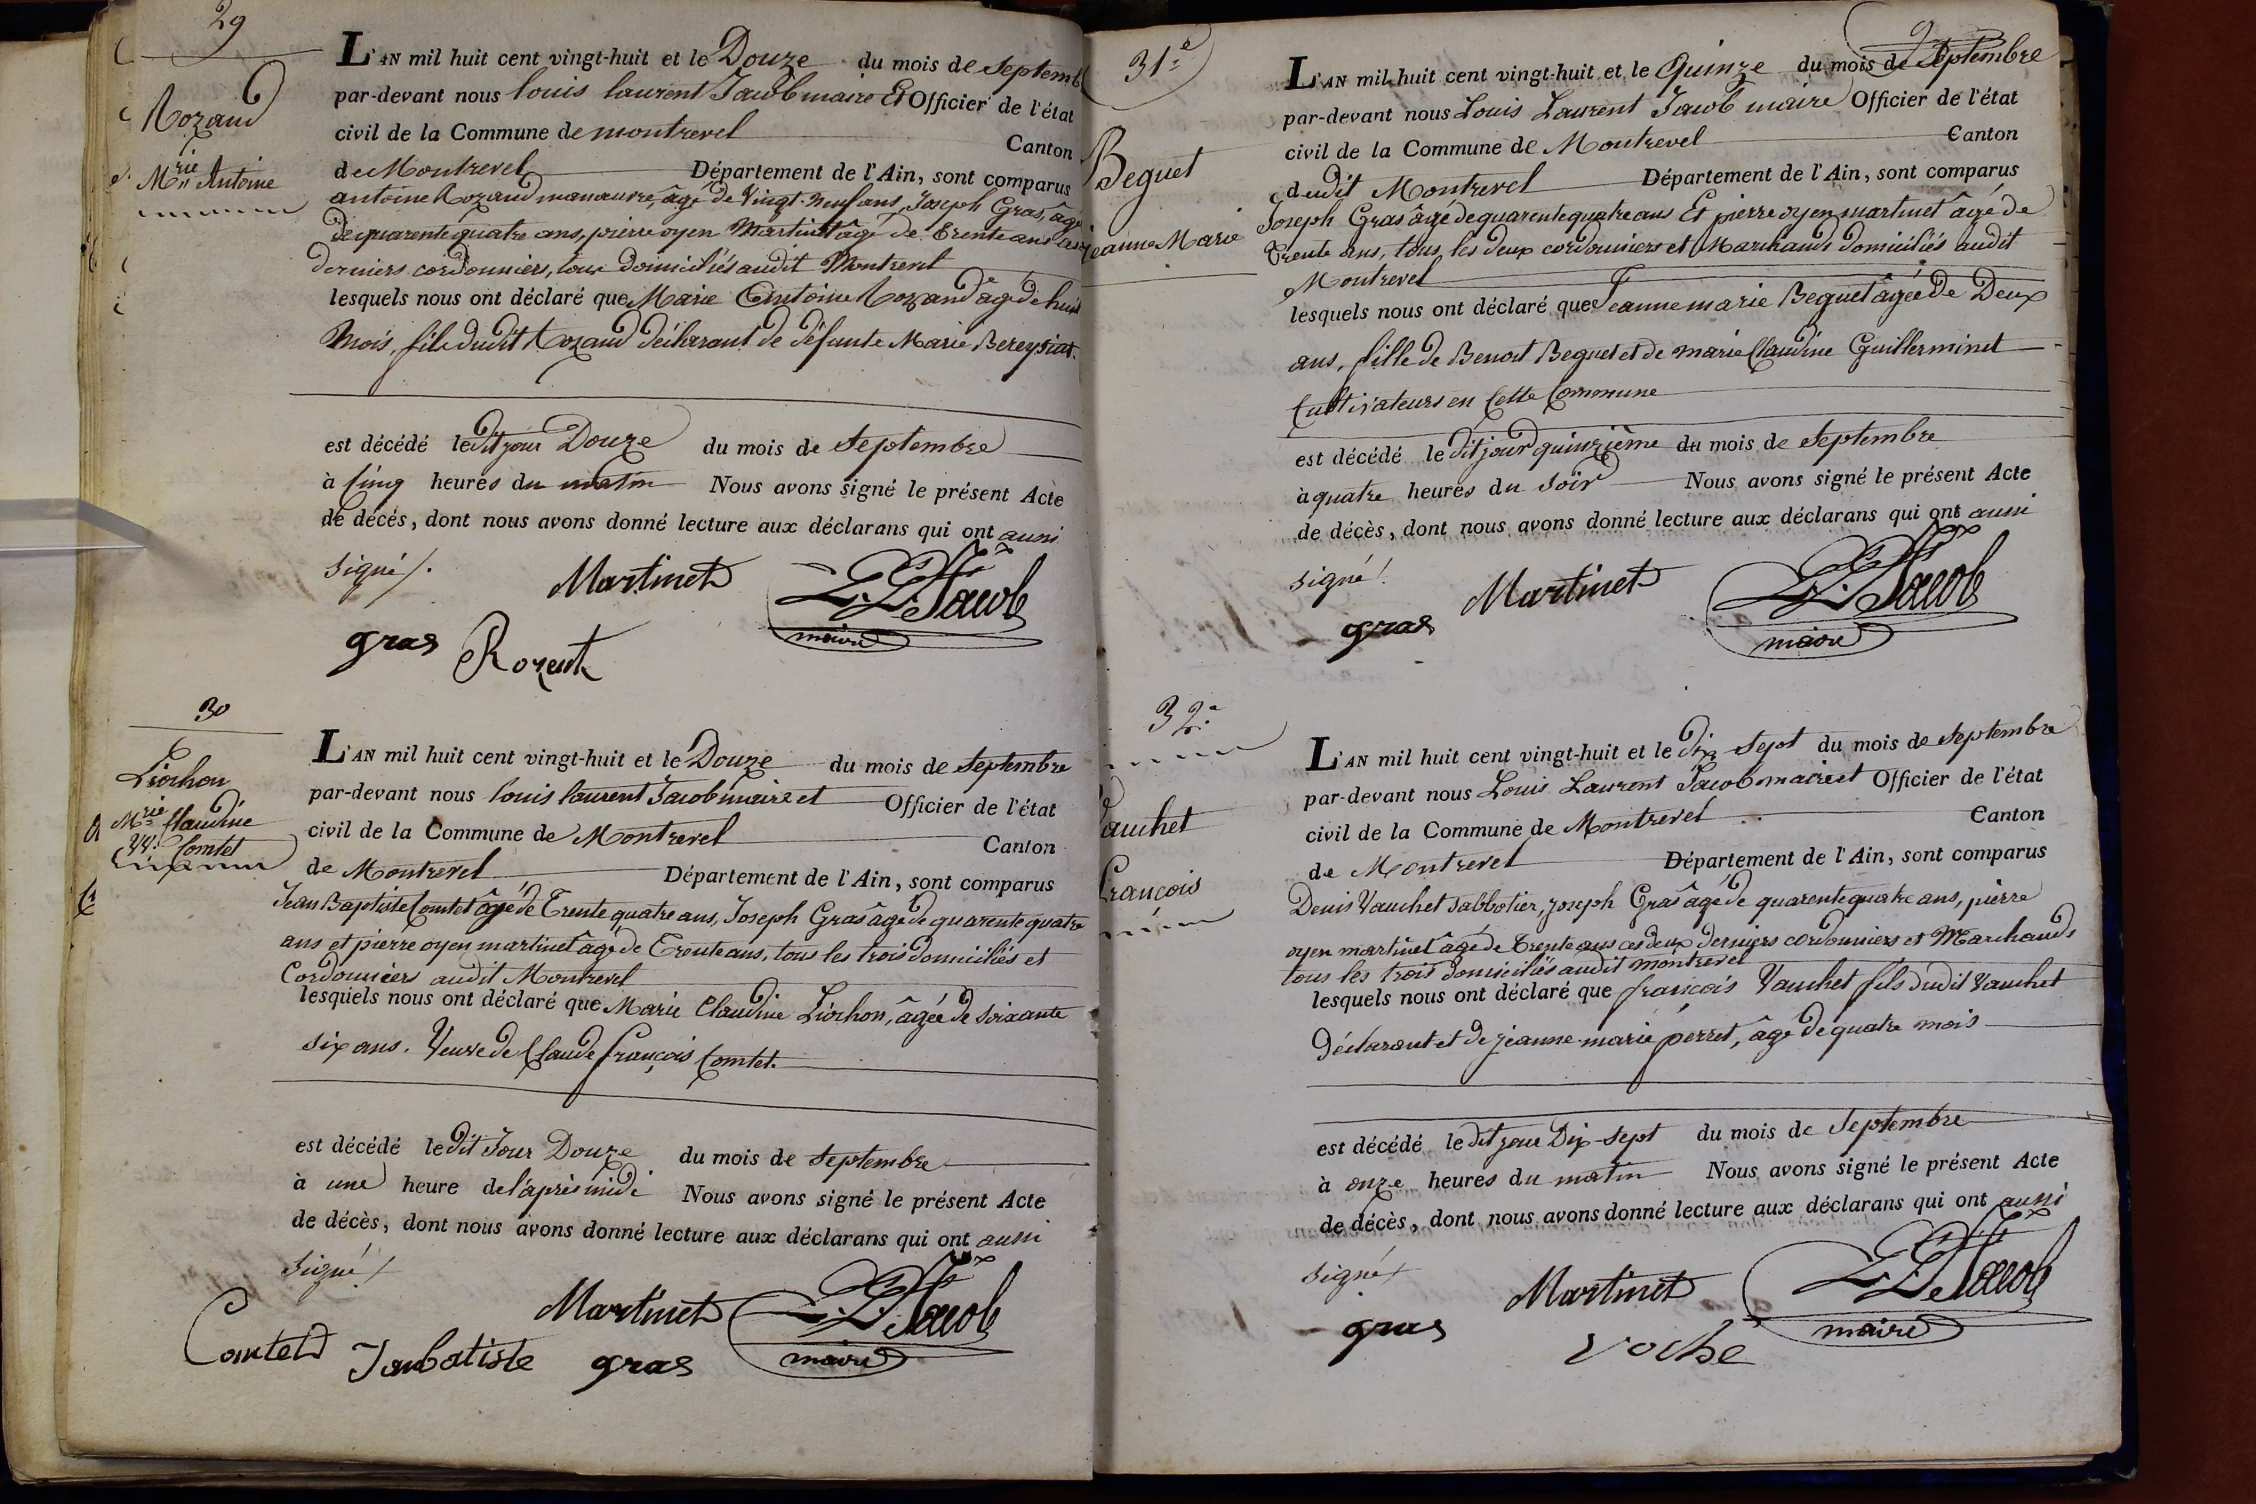 29
Rozand
Mrie Antoine
L'AN mil huit cent vingt-huit et le Douze du mois de Septemb
par-devant nous louis laurent Jacob maire Et Officier de l'état
civil de la Commune de montrevel
Canton
de Montrevel Département de l'Ain, sont comparus
antoine Rozand manœuvre, âgé de Vingt-neuf ans, Joseph Gras, âgé
de quarente quatre ans, pierre oyen Martinet âgé de Trente ans ces
derniers cordonniers, tous domiciliés audit Montrevel
lesquels nous ont déclaré que Marie Antoine Rozand âgé de huit
Mois, fils dudit Rozand déclarant de défunte Marie Bereysiat.
est décédé ledit jour Douze du mois de Septembre
à Cinq heures du matin Nous avons signé le présent Acte
de décés, dont nous avons donné lecture aux déclarans qui ont aussi
signé/.
Martinet L. L. Jacob
maire
gras Rozent
30
Liochon
Mrie Claudine
Vve Comtet
L'AN mil huit cent vingt-huit et le Douze du mois de Septembre
par-devant nous louis laurent Jacob maire et Officier de l'état
civil de la Commune de Montrevel
Canton
de Montrevel Département de l'Ain, sont comparus
Jean Baptiste Comtet âgé de Trente quatre ans, Joseph Gras âgé de quarente quatre
ans et pierre oyen martinet âgé de Trente ans, tous les trois domiciliés et
Cordonniers audit Montrevel
lesquels nous ont déclaré que Marie Claudine Liochon, âgée de soixante
six ans. Veuve de Claude françois Comtet.
est décédé ledit Jour Douze du mois de Septembre
à une heure de l'après midi Nous avons signé le présent Acte
de décès, dont nous avons donné lecture aux déclarans qui ont aussi
signé/
Martinet L. L. Jacob
maire
Comtet Janbatiste gras
9
31e
Beguet
Jeanne Marie
L'AN mil huit cent vingt-huit et le Quinze du mois de Septembre
par-devant nous Louis Laurent Jacob maire Officier de l'état
civil de la Commune de Montrevel Canton
dudit Montrevel Département de l'Ain, sont comparus
Joseph Gras âgé de quarente quatre ans Et pierre oyen martinet âgé de
Trente ans, tous les deux cordonniers et Marchands domiciliés audit
Montrevel
lesquels nous ont déclaré que Jeanne marie Beguet âgée de Deux
ans, fille de Benoit Beguet et de marie Claudine Guillerminet
Cultivateurs en Cette Commune
est décédé le dit jour quinzième du mois de Septembre
à quatre heures du soir Nous avons signé le présent Acte
de décès, dont nous avons donné lecture aux déclarans qui ont aussi
signé/.
Martinet L. L. Jacob
maire
gras
32e
Vauchet
François
L'AN mil huit cent vingt-huit et le dix Sept du mois de Septembre
par-devant nous Louis Laurent Jacob maire et Officier de l'état
civil de la Commune de Montrevel Canton
de Montrevel Département de l'Ain, sont comparus
Denis Vauchet sabbotier, joseph Gras âgé de quarente quatre ans, pierre
oyen martinet âgé de Trente ans ces deux derniers cordonniers et Marchands
tous les trois domiciliés audit montrevel
lesquels nous ont déclaré que françois Vauchet fils dudit Vauchet
Déclarant et de jeanne-marie perret, âgé de quatre mois
est décédé le dit jour Dix-Sept du mois de Septembre
à onze heures du matin Nous avons signé le présent Acte
de décès, dont nous avons donné lecture aux déclarans qui ont aussi
signé/
Martinet L. L. Jacob
maire
gras
voché